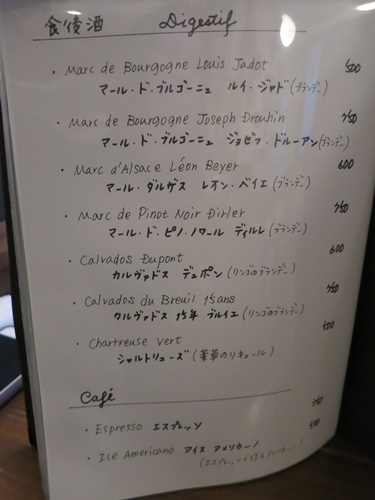 食後酒 Digestif
・Marc de Bourgogne Louis Jadot 500
マール・ド・ブルゴーニュ ルイ・ジャド(ブランデー)
・Marc de Bourgogne Joseph Drouhin 750
マール・ド・ブルゴーニュ ジョゼフ・ドルーアン(ブランデー)
・Marc d'Alsace Léon Beyer 600
マール・ダルザス レオン・ベイエ(ブランデー)
・Marc de Pinot Noir Dirler 750
マール・ド・ピノ・ノワール ディルレ(ブランデー)
・Calvados Dupont 600
カルヴァドス デュポン(リンゴのブランデー)
・Calvados du Breuil 15ans 750
カルヴァドス 15年 ブルイエ(リンゴのブランデー)
・Chartreuse vert
シャルトリューズ(薬草のリキュール)
Café
・Espresso エスプレッソ
・Ice Americano アイス アメリカーノ